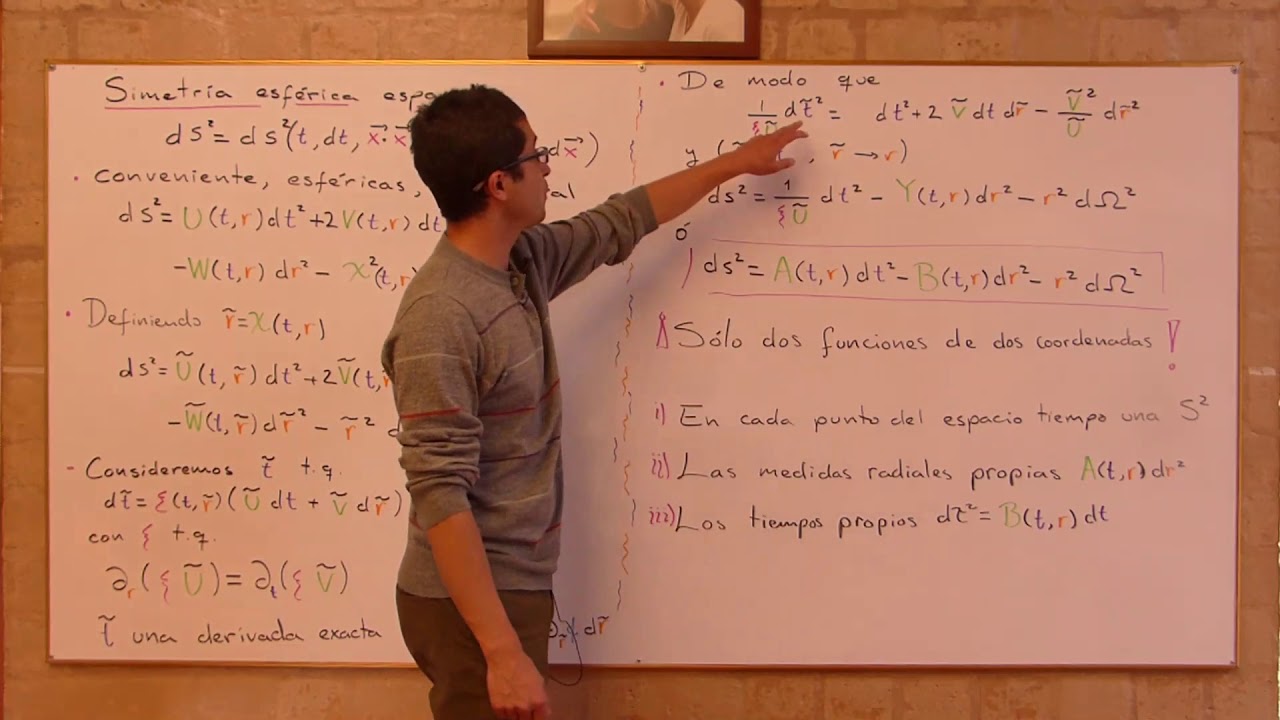 Simetría esférica
ds² = ds²(t, dt, x⃗·x⃗ dx⃗)
· conveniente, esféricas,
ds² = U(t,r)dt² + 2V(t,r)dt
-W(t,r) dr² - X²(t,r
· Definiendo r̃ = X(t,r)
ds² = Ũ(t, r̃)dt² + 2Ṽ(t,
-W̃(t,r̃)dr̃² - r̃²
- Consideremos t̃ t.q.
dt̃ = ξ(t,r̃)(Ũ dt + Ṽ dr̃)
con ξ t.q.
∂r(ξ Ũ) = ∂t(ξ Ṽ)
t̃ una derivada exacta
dr̃
· De modo que
1/ξŨ dt̃² = dt² + 2 Ṽ dt dr̃ - Ṽ²/Ũ dr̃²
y ( , r̃ → r)
ds² = 1/ξŨ dt² - Y(t,r)dr² - r² dΩ²
ó
ds² = A(t,r)dt² - B(t,r)dr² - r² dΩ²
¡Sólo dos funciones de dos coordenadas!
i) En cada punto del espacio tiempo una S²
ii) Las medidas radiales propias A(t,r)dr²
iii) Los tiempos propios dτ² = B(t,r)dt